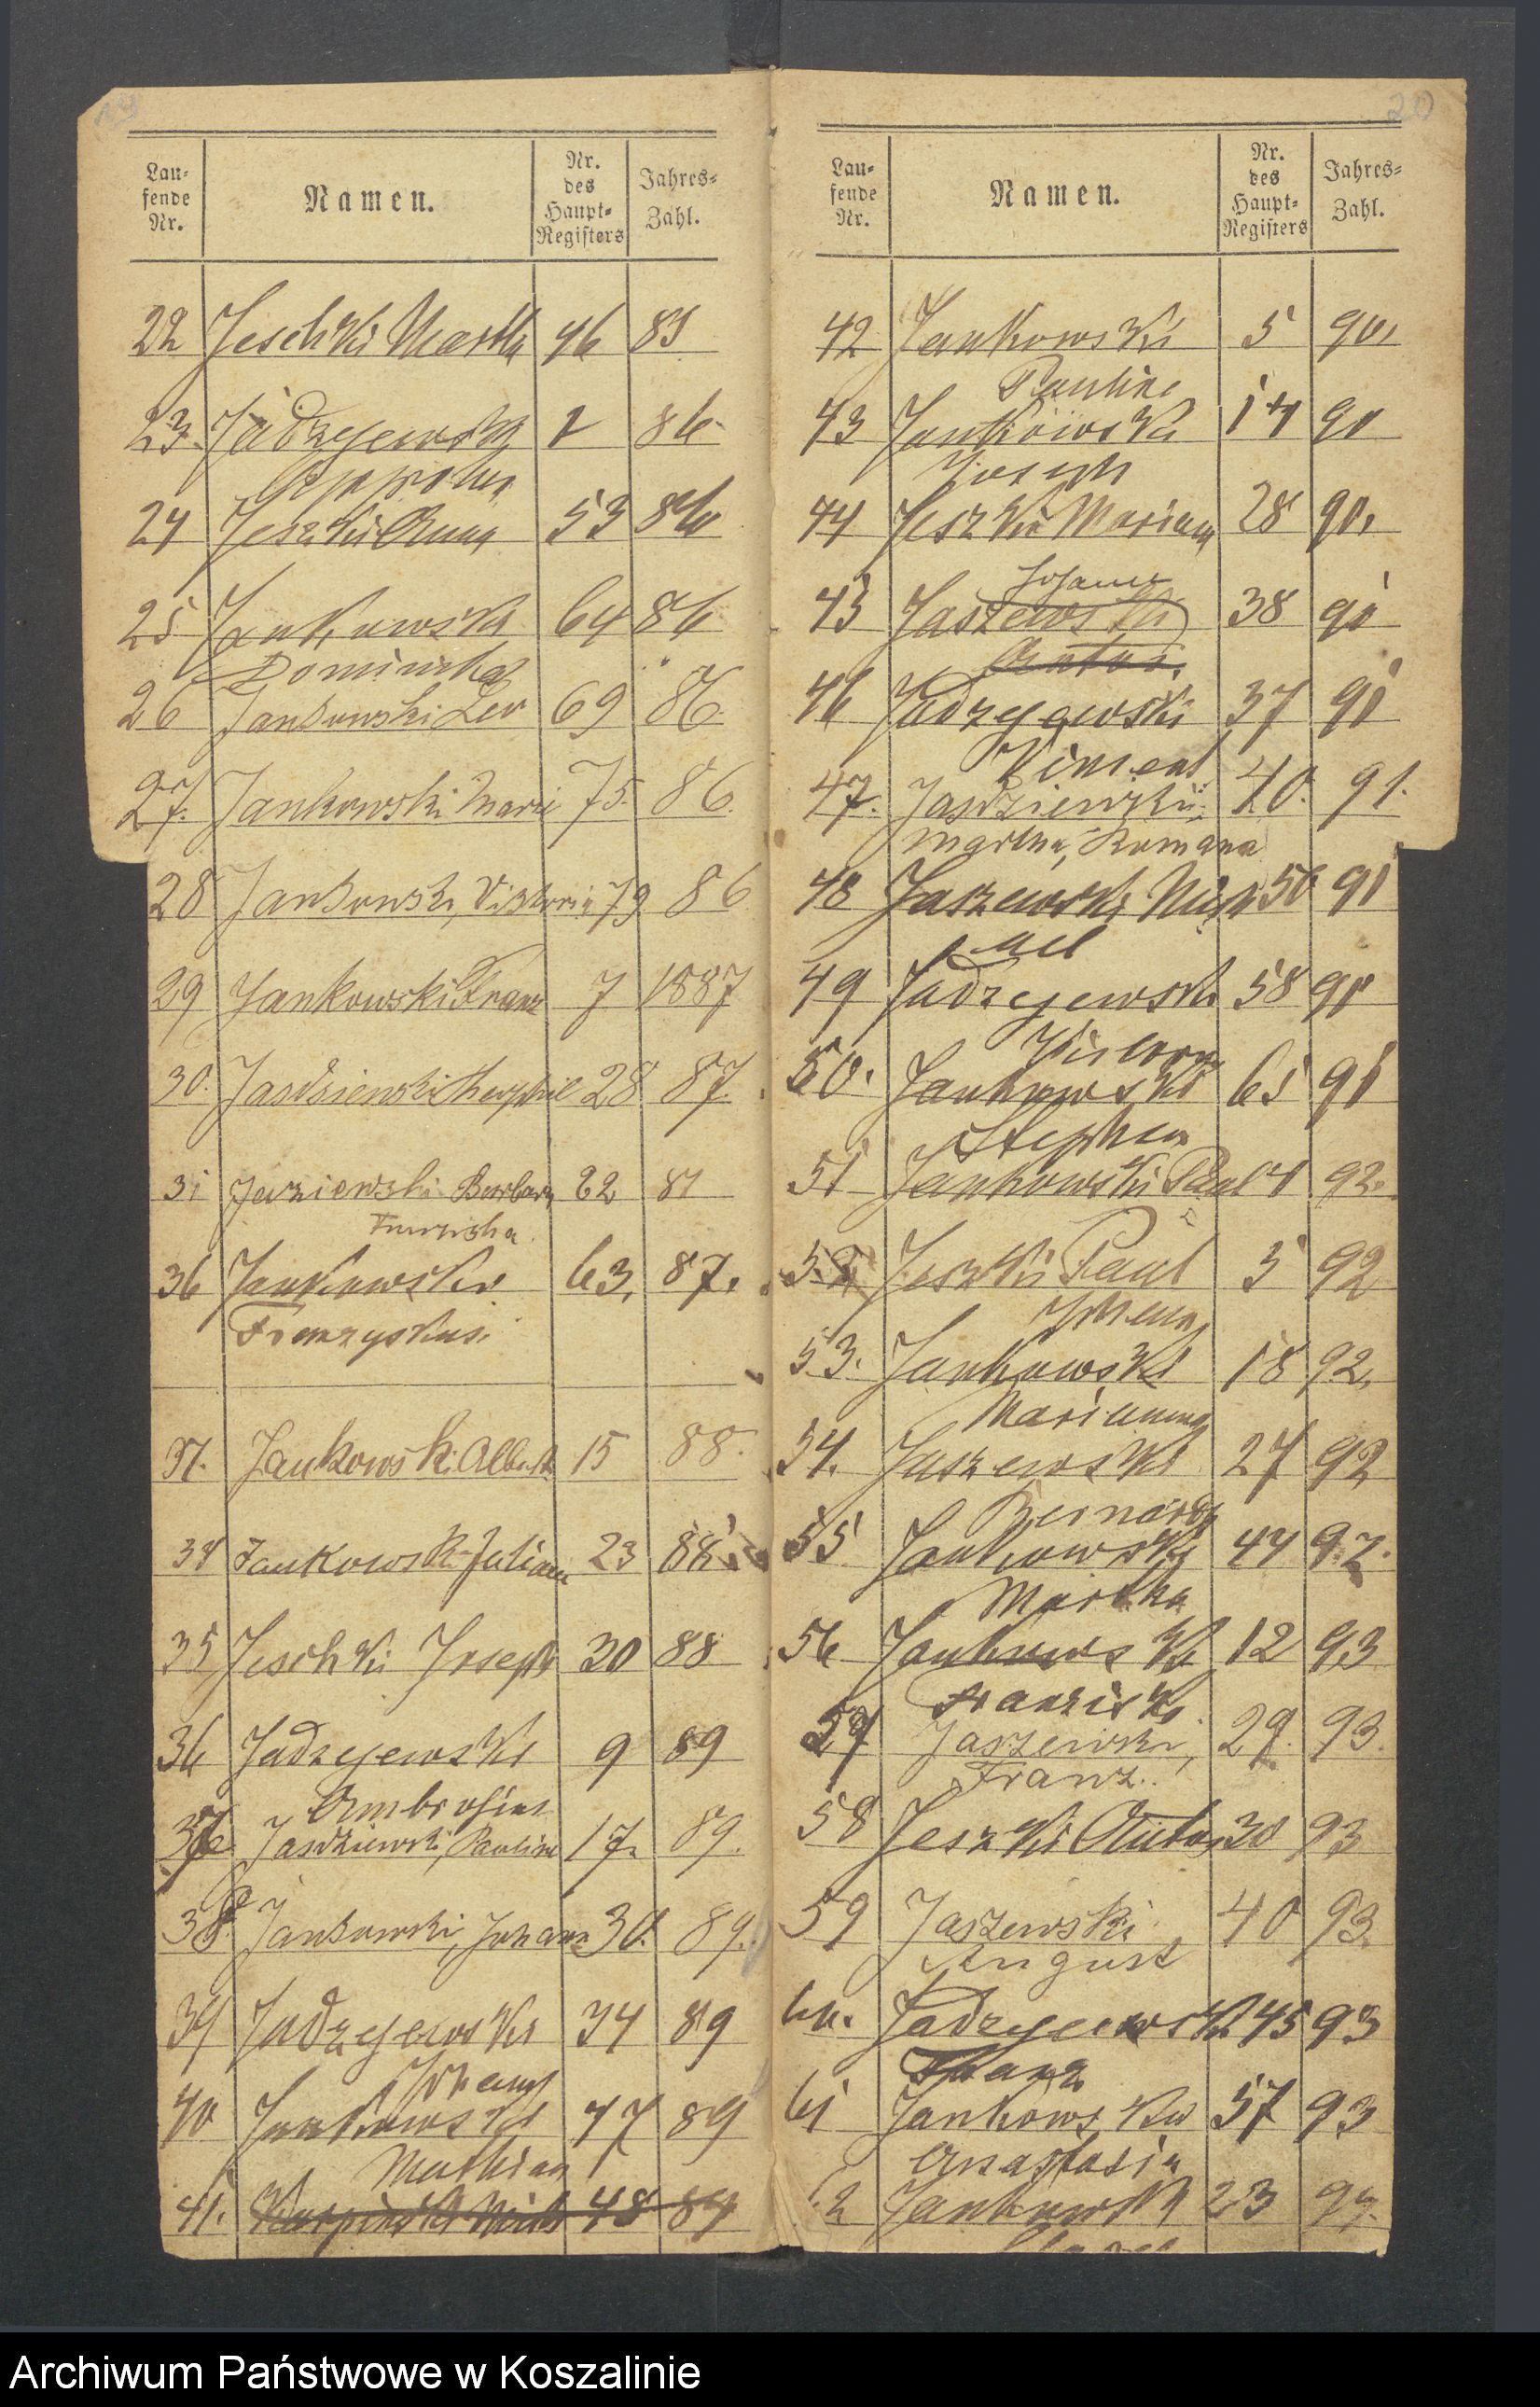 19
Lau-
fende
Nr.
Namen.
Nr.
des
Haupt-
Registers
Jahres-
Zahl.
22 Jeschki Martha 46 85
23. Jadzejewski 2 86
24 Jeszki Anna 53 86
25 Jankowski 64 86
Dominika
26 Jankowski Leo 69 86.
27. Jankowski Marie 75. 86.
28 Jankowski, Viktoria 79 86
29 Jankowski Franz 7 1887
30. Jasdziewski Theophil 28 87.
31 Barbara 87
Franziska
36 Jankowski 63, 87.
Franzyskus.
Jankowski Albert 15 88.
34 Jankowski Julian 23 88
35 Jeschki Joseph 30 88
36 Jadzejewski 9 89
Ambrosius
Jasdziewski, Pauline 17. 89.
38. Jankowski, Johann 30. 89.
39 Jadzejewski 34 89
Johann
40 Jankowski 47 89
Mathias
41. 48 89
20
Lau-
fende
Nr.
Namen.
Nr.
des
Haupt-
Registers
Jahres-
Zahl.
42 Jankowski 5 90.
Pauline
43 Jankowski 14 90
Joseph
44 Jeszki Mariana 28 90.
Johann
45 Jaszewski 38 90
Anton
46 Jadzejewski 37 91
Vincent
47. Jasdziewski, 40. 91.
Martha, Romana
48 Jaszewski Mich 50 91
ael
49 Jadzejewski 58 91
50. Jankowski 65 91
Stephan
51 Jankowski Paul 4 92.
52 Jeszki Paul 5 92
Johann
53. Jankowski 18 92.
Marianna
54. Jaszewski 27 92
Bernard
55 Jankowski 44 92.
Martha
56 Jankowski 12 93
Franziska
57 Jaszewski, 29. 93.
Franz.
58 Jeszki Anton 30 93
59 Jaszewski 40 93.
August
60. Jadzejewski 45 93
Franz
61 Jankowski 57 93
Anastasia
Jankowski 23 94.
Archiwum Państwowe w Koszalinie